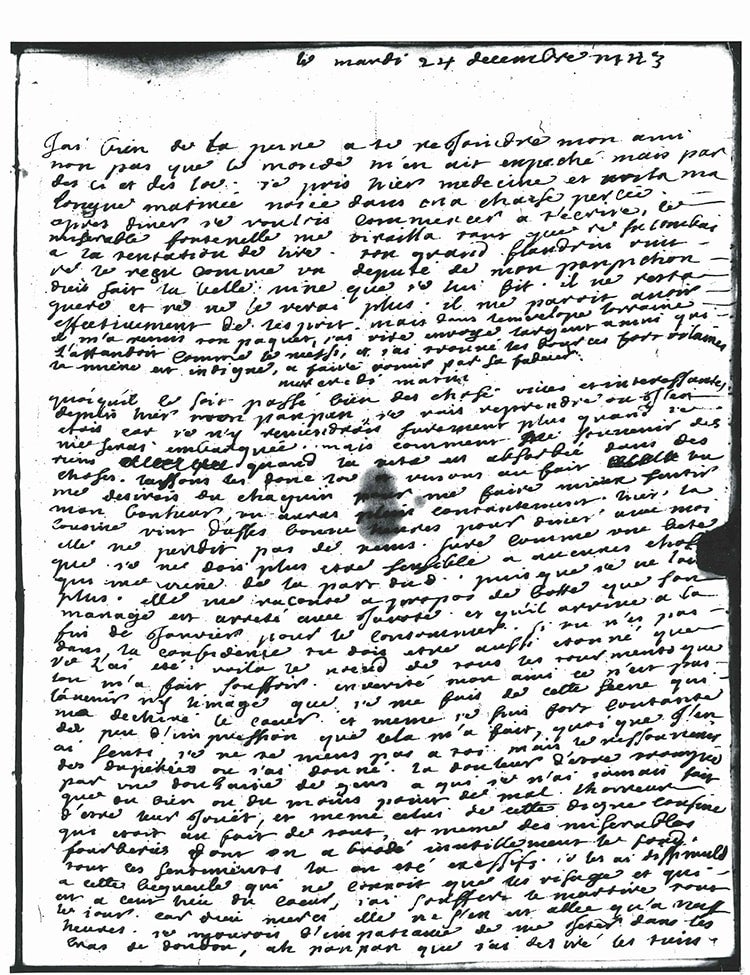 le mardi 24 decembre 1743
J'ai bien de la peine a te rejoindre mon ami
non pas que le monde m'en ait enpeché mais par
des ci et des la. je pris hier medecine et voila ma
longue matinée noiée dans ona chaise percée.
apres diner je voulus commencer a t'ecrire, le
miserable fontenelle me tirailla tant que je succombai
a la tentation de lire. ton grand flandrin vint
je le recu comme un deputé de mon panpichon
dieu sait la belle mine que je lui fit. il ne resta
guere et je ne le verai plus. il me paroit avoir
effectivement de l'esprit. mais dans l'envelope lorraine
il m'a remis ton paquet, j'ai vite envoyé l'argent a qui
l'attendoit comme le messi, et j'ai trouvé les bourses fort vilaines
la miene est indigne, a faire vomir par sa fadeur.
mercredi matin
quoiqu'il se soit passé bien des chose vives et interessantes
depuis hier mon panpan, je vais reprendre ou j'en
etois car je n'y reviendrois surement plus quand je
me serai embarquée. mais comment se souvenir des
riens quand la tete est absorbée dans des
choses. laissons les donc la venons au fait
me desirois du chagrin pour me faire mieux sentir
mon bonheur tu auras contentement. hier, la
cousine vint d'asses bonne heures pour diner avec moi
elle ne perdit pas de tems. sure comme une bete
que je ne dois plus etre sensible a aucunes chose
qui me viene de la part du d. puisque je ne l'aime
plus. elle me raconte a propos de botte que son
mariage est arreté avec et qu'il arrive a la
fin de janvier pour le consommer. si tu n'es pas
dans la confidence tu dois etre aussi etonné que
je l'ai eté. voila le neud de tous les tourmens que
l'on m'a fait souffrir. en verité mon ami ce n'est pas
l'avenir ny l'image que je me fais de cette scene qui
ma dechiré le coeur. et meme je suis fort contante
du peu d'inpression que cela m'a fait, quoi que j'en
ai senti. je ne te mens pas a toi. mais le ressouvenir
des duperies ou j'ai donné. la douleur d'etre trompée
par une douzaine de gens a qui je n'ai jamais fait
que du bien ou du moins point de mal. l'horreur
d'etre leur jouet, et meme celui de cette digne cousine
qui etoit au fait de tout, et meme des miserables
fourberies dont on a brodé inutillement le fond.
tout ces sentiments la on eté excessifs. je les ai dissimulé
a cette begueule qui ne connoit que les visage et qui
est a cent lieu du coeur, j'ai souffert le martire tout
le jour. car dieu merci elle ne s'en est allée qu'a neuf
heures. je mourois d'impatiance de me jeter dans les
bras de doudou, ah panpan que j'ai desiré les tiens.